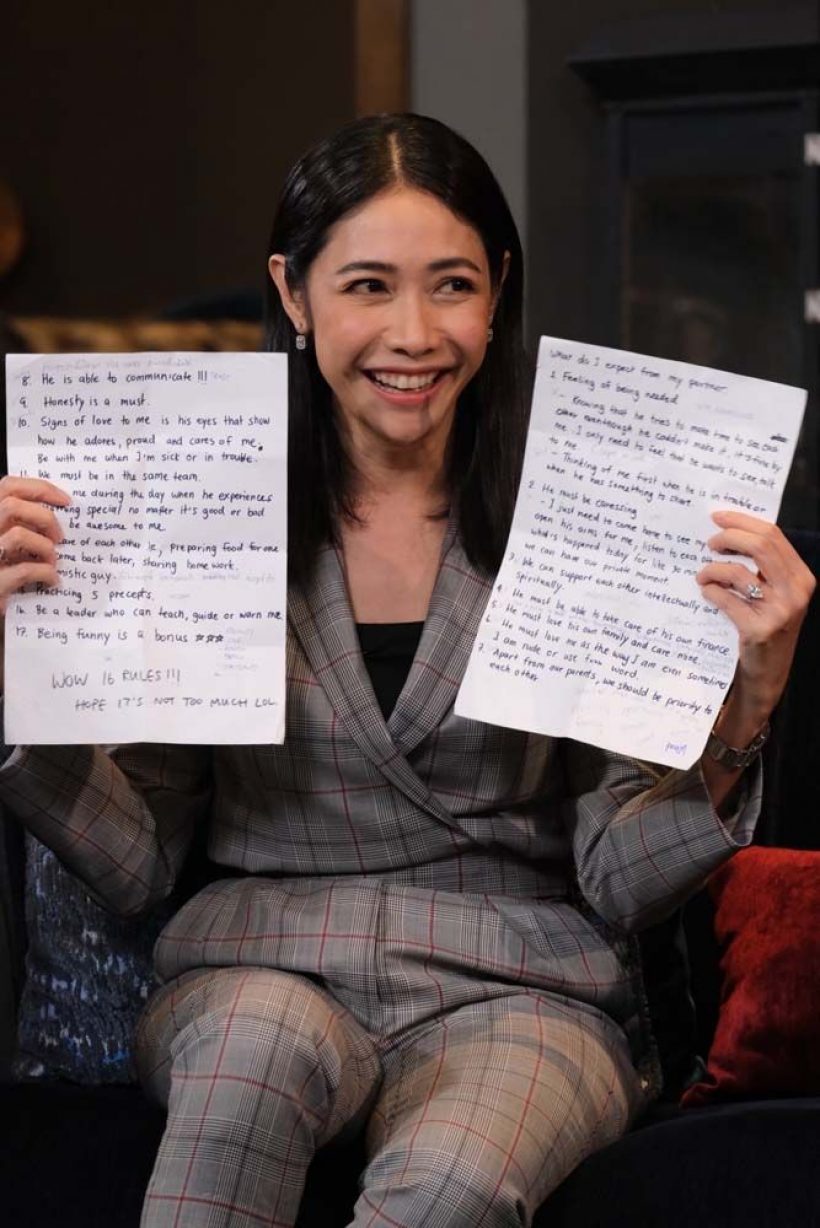 What do I expect from my partner
1. Feeling of being needed
- Knowing that he tries to make time to see each
other eventhough he couldn't make it, it's fine by
me. I only need to feel that he wants to see, talk
to me.
- Thinking of me first when he is in trouble or
when he has something to share.
2. He must be caressing
- I just need to come home to see my
open his arms for me, listen to each other
what's happened today for like 30 min
we can have our private moment.
3. We can support each other intellectually and
spiritually.
4. He must be able to take care of his own finance
5. He must love his own family and care mine.
6. He must love me as the way I am even sometimes
I am rude or use word.
7. Apart from our parents, we should be priority to
each other
8. He is able to communicate !!!
9. Honesty is a must.
10. Signs of love to me is his eyes that show
how he adores, proud and cares of me.
Be with me when I'm sick or in trouble.
11. We must be in the same team.
me during the day when he experiences
special no matter it's good or bad
be awesome to me.
are of each other ie, preparing food for one
ome back later, sharing home work.
mistic guy.
15. Practicing 5 precepts.
16. Be a leader who can teach, guide or warn me
17. Being funny is a bonus ☆☆☆
WOW 16 RULES!!!
HOPE IT'S NOT TOO MUCH LOL.
N
N